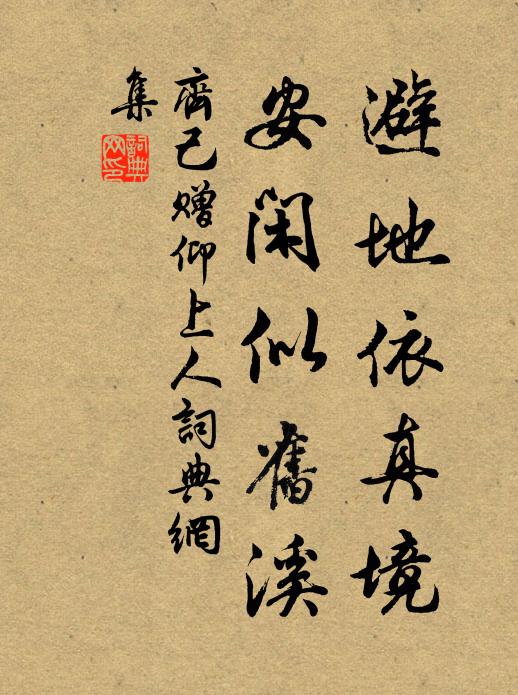 避地依真境
安閑似舊溪
齊己贈仰上人詞典網
集
詞典网印